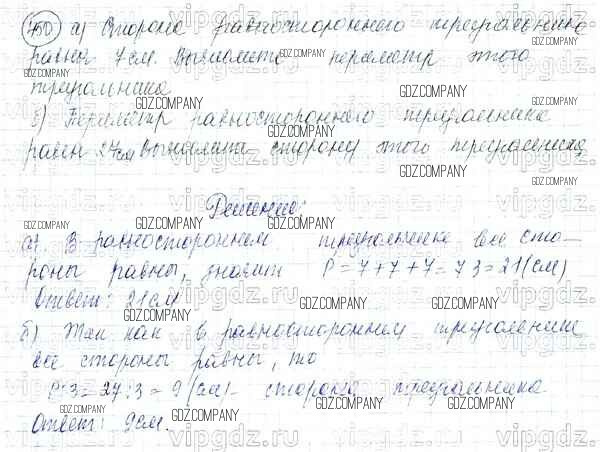 750 а) Сторона равностороннего треугольника
равна 7 см. Вычислите периметр этого
треугольника
б) Периметр равностороннего треугольника
равен 27 см Вычислите сторону этого треугольника
Решение:
а) В равностороннем треугольнике все сто-
роны равны, значит P = 7 + 7 + 7 = 7·3 = 21 (см)
Ответ: 21 см
б) Так как в равностороннем треугольнике
все стороны равны, то
P:3 = 27:3 = 9 (см) - сторона треугольника.
Ответ: 9 см.
GDZ.COMPANY
vipgdz.ru